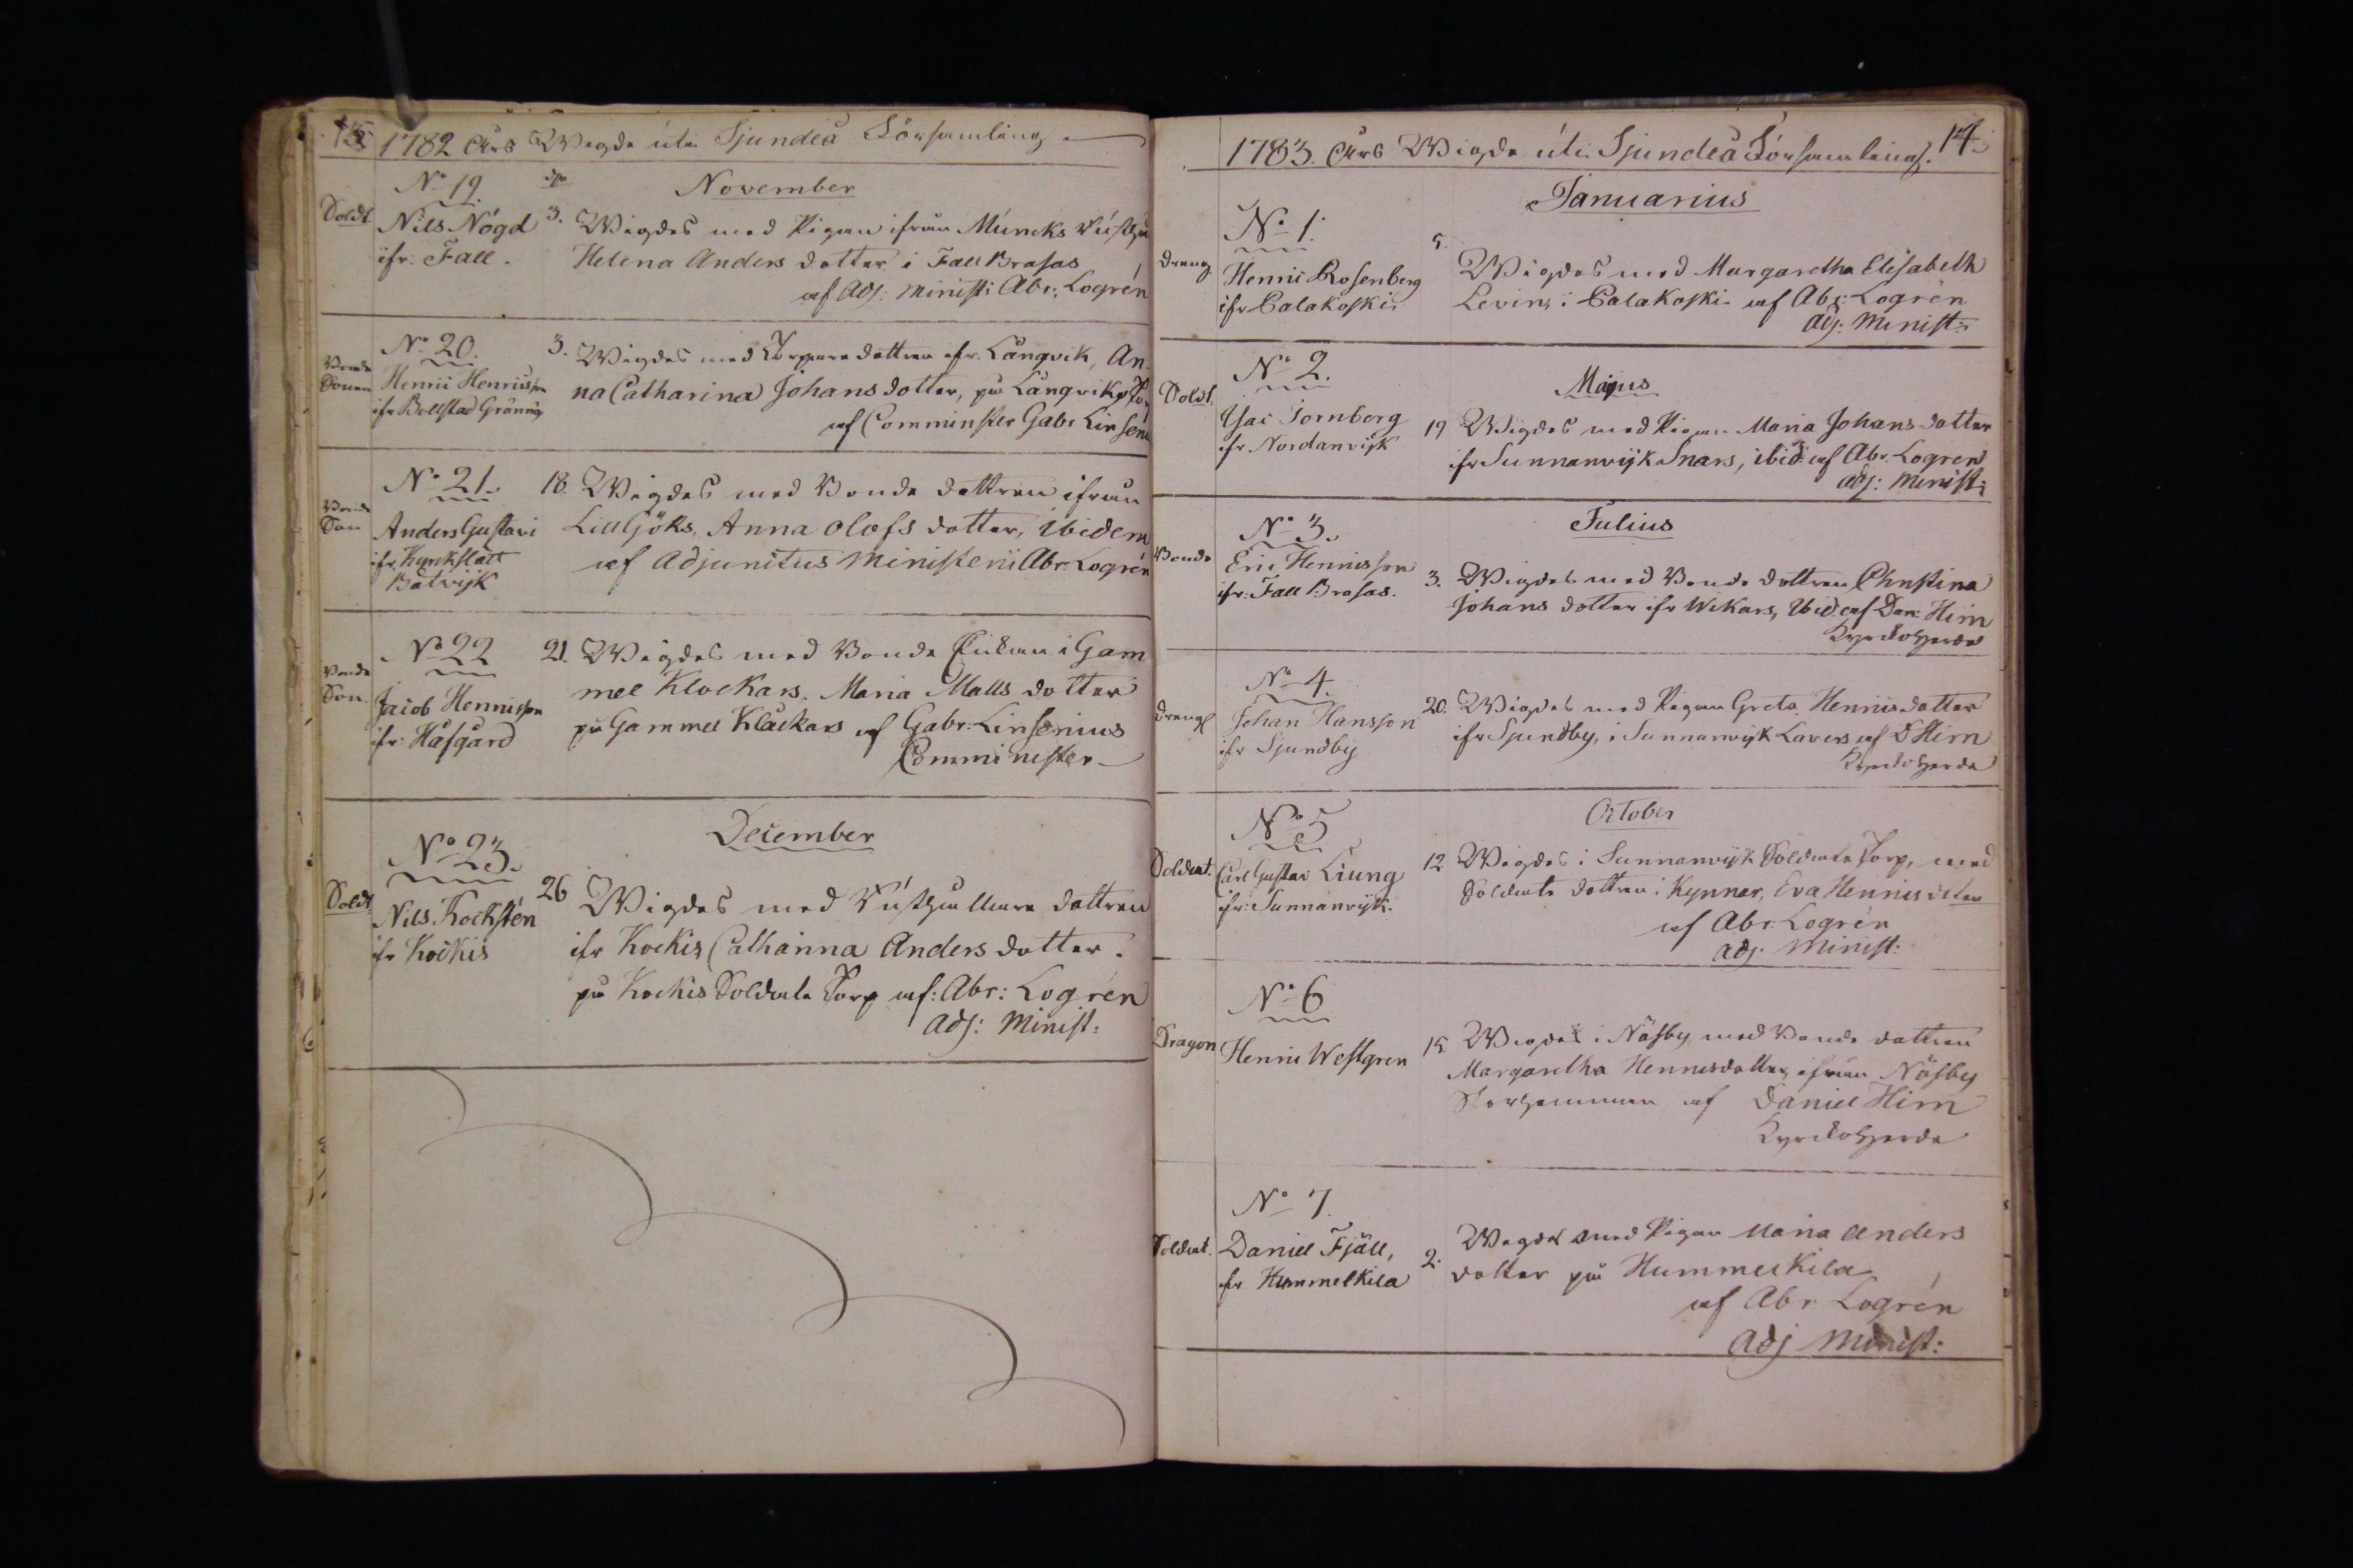 1782 Års Wigde uti Sjundeå Församling
No 19. November
Soldt Nils Nögd 3. Wigdes med Pigan ifrån Muncks
ifr: Fall. Helena Anders dotter i Fall Brasas
af Adj: Minist: Abr: Logrén
No 20. 3. Wigdes med Torpare dottren ifr. Långvik, An-
Bonde Sonen Henric Henricsson na Catharina Johans dotter, på Långviks
ifr Bollstad Gränny
af Comminister Gabr Linsén
No 21. 18. Wigdes med Bonde dottren ifrån
Bonde Son Anders Gustavi LillGjöks, Anna Olofs dotter, ibidem
ifr. Kyrkslätt af Adjunctus Ministerii Abr. Logrén
Båtvijk
No 22 21. Wigdes med Bonde Enkan i Gam
Bonde Son Jacob Henricsson mel Klockars. Maria Matts dotter
ifr: Hafgård på Gammel Klåckars af Gabr: Linsenius
Comminister
December
No 23.
Soldt Nils Kockstén 26 Wigdes med dottren
ifr Kockis ifr Kockis Catharina Anders dotter.
på Kockis Soldate Torp af: Abr: Logrén
Adj: Minist:
1783. Års Wigde uti Sjundeå Församling. 14.
Januarius
No 1.
Dreng Henric Rosenberg 5. Wigdes med Margaretha Elisabeth
ifr Palakoski. Levin, i Palakoski af Abr: Logrén
Adj: Minist:
No 2. Majus
Soldt. Isac Tornberg 19 Wigdes med Pigan Maria Johans dotter
ifr Nordanvijk ifr Sunnanvijk Snars, ibid: af Abr. Logren
Adj: Minist:
No 3. Julius
Bonde Eric Henricsson 3. Wigdes med Bonde dottren Christina
ifr: Fall Brasas. Johans dotter ifr Wikars, Ibid af Dan: Hirn
Kyrckoherde
No 4.
Drengl Johan Hansson 20. Wigdes med Pigan Greta Henricsdotter
ifr Sjundby ifr Sjundby, i Sunnanvijk Lavers af D Hirn
Kyrckoherde
No 5 October
Soldat. Carl Gustav Liung 12 Wigdes i Sunnanvijk Soldate Torp, med
ifr: Sunnanvijk. Soldate dottren i Kynnar, Eva Henrics dotter
af Abr. Logrén
Adj. Minist:
No 6
Dragon Henric Westgren 15. Wigdes i Näsby med Bonde dottren
Margaretha Henricsdotter, ifrån Näsby
Storhemman af Daniel Hirn
Kyrckoherde
No 7.
Soldat. Daniel Fjäll, 2. Wigdes med Pigan Maria Anders
ifr Hummelkila dotter på Hummelkila
af Abr Logrén
Adj Minist: